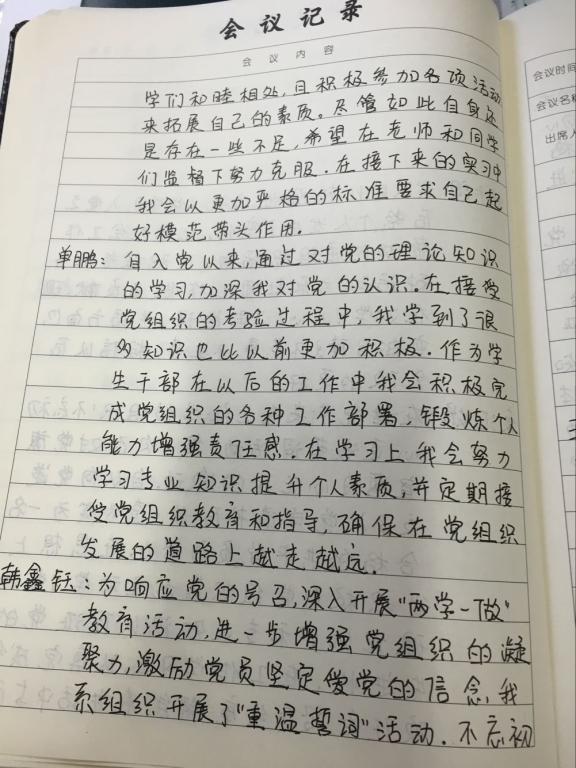 会议记录
会议内容
会议时间
会议名称
出席人
学们和睦相处,且积极参加各项活动
来拓展自己的素质。尽管如此自身还
是存在一些不足,希望在老师和同学
们监督下努力克服.在接下来的实习中
我会以更加严格的标准要求自己起
好模范带头作用.
单鹏:自入党以来,通过对党的理论知识
的学习,加深我对党的认识.在接受
党组织的考验过程中,我学到了很
多知识也比以前更加积极.作为学
生干部在以后的工作中我会积极完
成党组织的各种工作部署,锻炼个人
能力增强责任感.在学习上,我会努力
学习专业知识提升个人素质,并定期接
受党组织教育和指导,确保在党组织
发展的道路上越走越远.
韩鑫钰:为响应党的号召,深入开展"两学一做"
教育活动,进一步增强党组织的凝
聚力,激励党员坚定爱党的信念,我
系组织开展了"重温誓词"活动.不忘初